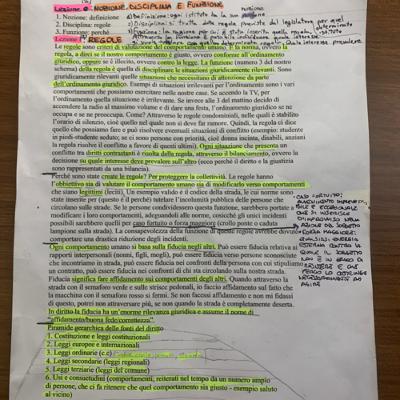 Lezione 0 NOZIONE, DISCIPLINA E FUNZIONE
1. Nozione: definizione
2. Disciplina: regole
3. Funzione: perché
Lezione 1 REGOLE
Le regole sono criteri di valutazione del comportamento umano. E la norma, ovvero la regola, a dirci se il nostro comportamento è giusto, ovvero conforme all'ordinamento
giuridico, oppure se è illecito, ovvero contro la legge. La funzione (numero 3 del nostro
schema) della regola è quella di disciplinare le situazioni giuridicamente rilevanti. Sono
giuridicamente rilevanti quelle situazioni che necessitano di attenzione da parte
dell'ordinamento giuridico. Esempi di situazioni irrilevanti per l'ordinamento sono i vari
comportamenti che possiamo esercitare nelle nostre case. Se accendo la TV, per
l'ordinamento quella situazione è irrilevante. Se invece alle 3 del mattino decido di
accendere la radio al massimo volume e di dare una festa, l'ordinamento giuridico se ne
occupa e se ne preoccupa. Come? Attraverso le regole condominiali, nelle quali è stabilito
l'orario di silenzio, cioè quello nel quale non si deve far rumore. Quindi, la regola ci dice
quello che possiamo fare e può risolvere eventuali situazioni di conflitto (esempio: studente
in piedi-studente seduto; se ci sono persone con priorità, cioè donna incinta, disabili, anziani
la regola risolve il conflitto a favore di questi ultimi). Ogni situazione che presenta un
conflitto tra diritti contrastanti è risolta dalla regola, attraverso il bilanciamento, ovvero la
decisione su quale interesse deve prevalere sull'altro (ecco perché il diritto e la giustizia
sono rappresentati da una bilancia).
Perché sono state create le regole? Per proteggere la collettività. Le regole hanno
l'obbiettivo sia di valutare il comportamento umano sia di modificarlo verso comportamenti
che siano legittimi (leciti). Un esempio valido è il codice della strada, le cui norme sono
state inserite per (questo è il perché) tutelare l'incolumità pubblica delle persone che
circolano sulle strade. Se le persone condividessero questa funzione, sarebbero portate a
modificare i loro comportamenti, adeguandole alle norme, cosicché gli unici incidenti
possibili sarebbero quelli per caso fortuito o forza maggiore (crollo ponte o caduta
lampione sulla strada). La consapevolezza della funzione di queste regole avrebbe dovuto
comportare una drastica riduzione degli incidenti.
CASO FORTUITO:
FORZA MAGGIORE:
Ogni comportamento umano si basa sulla fiducia negli altri. Può essere fiducia relativa ai
rapporti interpersonali (nonni, figli, mogli), può essere fiducia verso persone sconosciute
che incontriamo in strada, può essere fiducia nei confronti della persona con cui stipuliamo
un contratto, può essere fiducia nei confronti di chi sta circolando sulla nostra strada.
Fiducia significa fare affidamento sui comportamenti degli altri. Quando attraverso la
strada con il semaforo verde e sulle strisce pedonali, io faccio affidamento sul fatto che
la macchina con il semaforo rosso si fermi. Se non facessi affidamento e non mi fidassi
di questo, potrei non attraversare più, se non quando la strada è completamente deserta.
In diritto la fiducia ha un'enorme rilevanza giuridica e assume il nome di
"affidamento/buona fede/correttezza".
Piramide gerarchica delle fonti del diritto
1. Costituzione e leggi costituzionali
2. Leggi europee e internazionali
3. Leggi ordinarie (c.c)
4. Leggi secondarie (leggi regionali)
5. Leggi terziarie (leggi del comune)
6. Usi e consuetudini (comportamenti, reiterati nel tempo da un numero ampio
di persone, che ci fa ritenere che quel comportamento sia giusto - esempio saluto
al vicino)